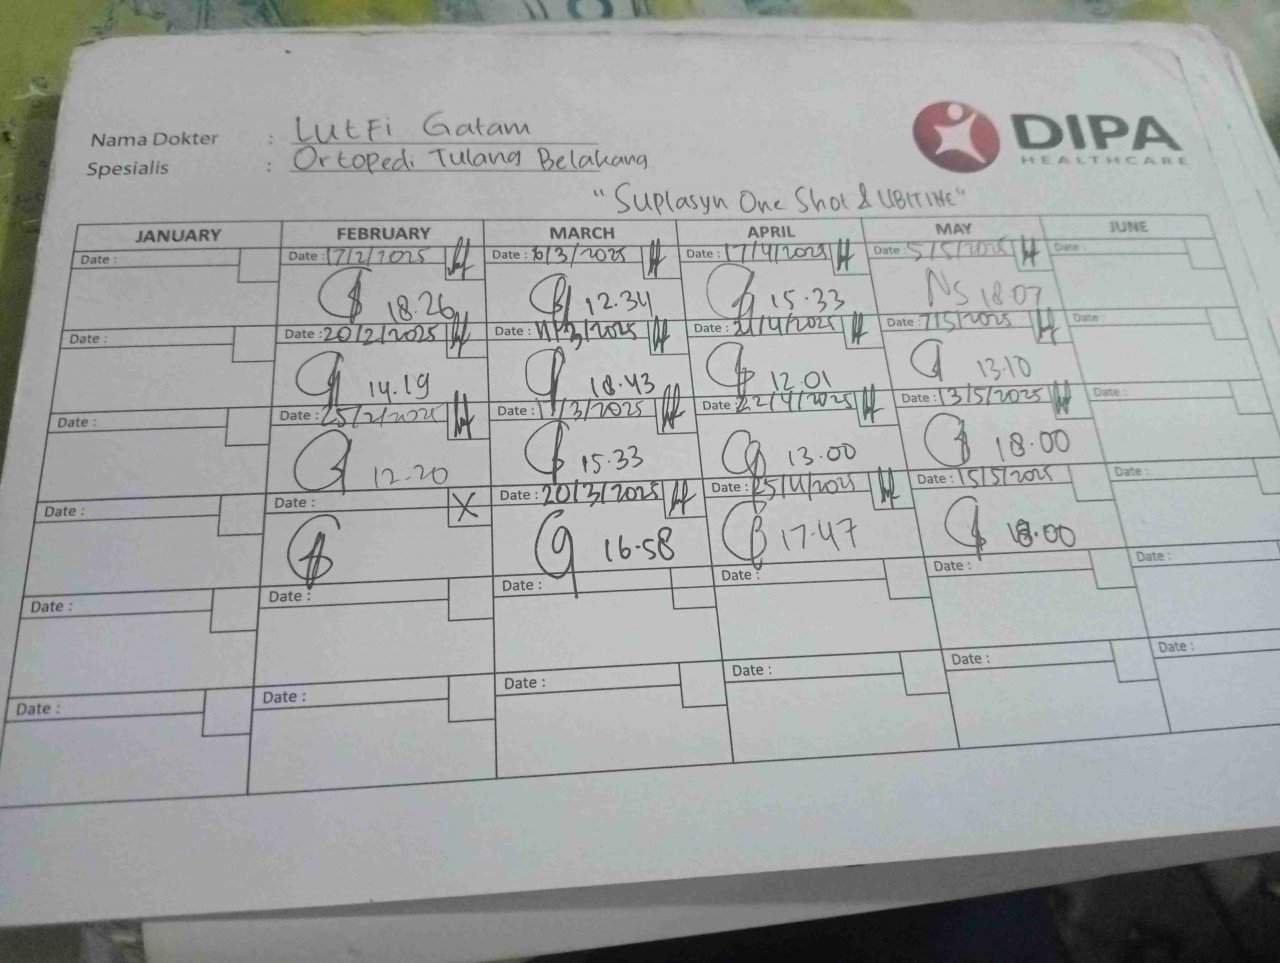 Nama Dokter : Lutfi Gatam
Spesialis : Ortopedi Tulang Belakang
DIPA
HEALTHCARE
"Suplasyn One Shot & UBITINE"
JANUARY FEBRUARY MARCH APRIL MAY JUNE
Date : Date : 17/2/2025 Date : 6/3/2025 Date : 17/4/2025 Date : 5/5/2025 Date :
18.26 12.34 15.33 NS 18.07
Date : Date : 20/2/2025 Date : 11/3/2025 Date : 21/4/2025 Date : 7/5/2025 Date :
14.19 18.43 12.01 13.10
Date : Date : 25/2/2025 Date : /3/2025 Date : 22/4/2025 Date : 13/5/2025 Date :
12.20 15.33 13.00 18.00
Date : Date : X Date : 20/3/2025 Date : 25/4/2025 Date : 15/5/2025 Date :
16.58 17.47 18.00
Date : Date : Date : Date : Date : Date :
Date : Date : Date : Date : Date : Date :